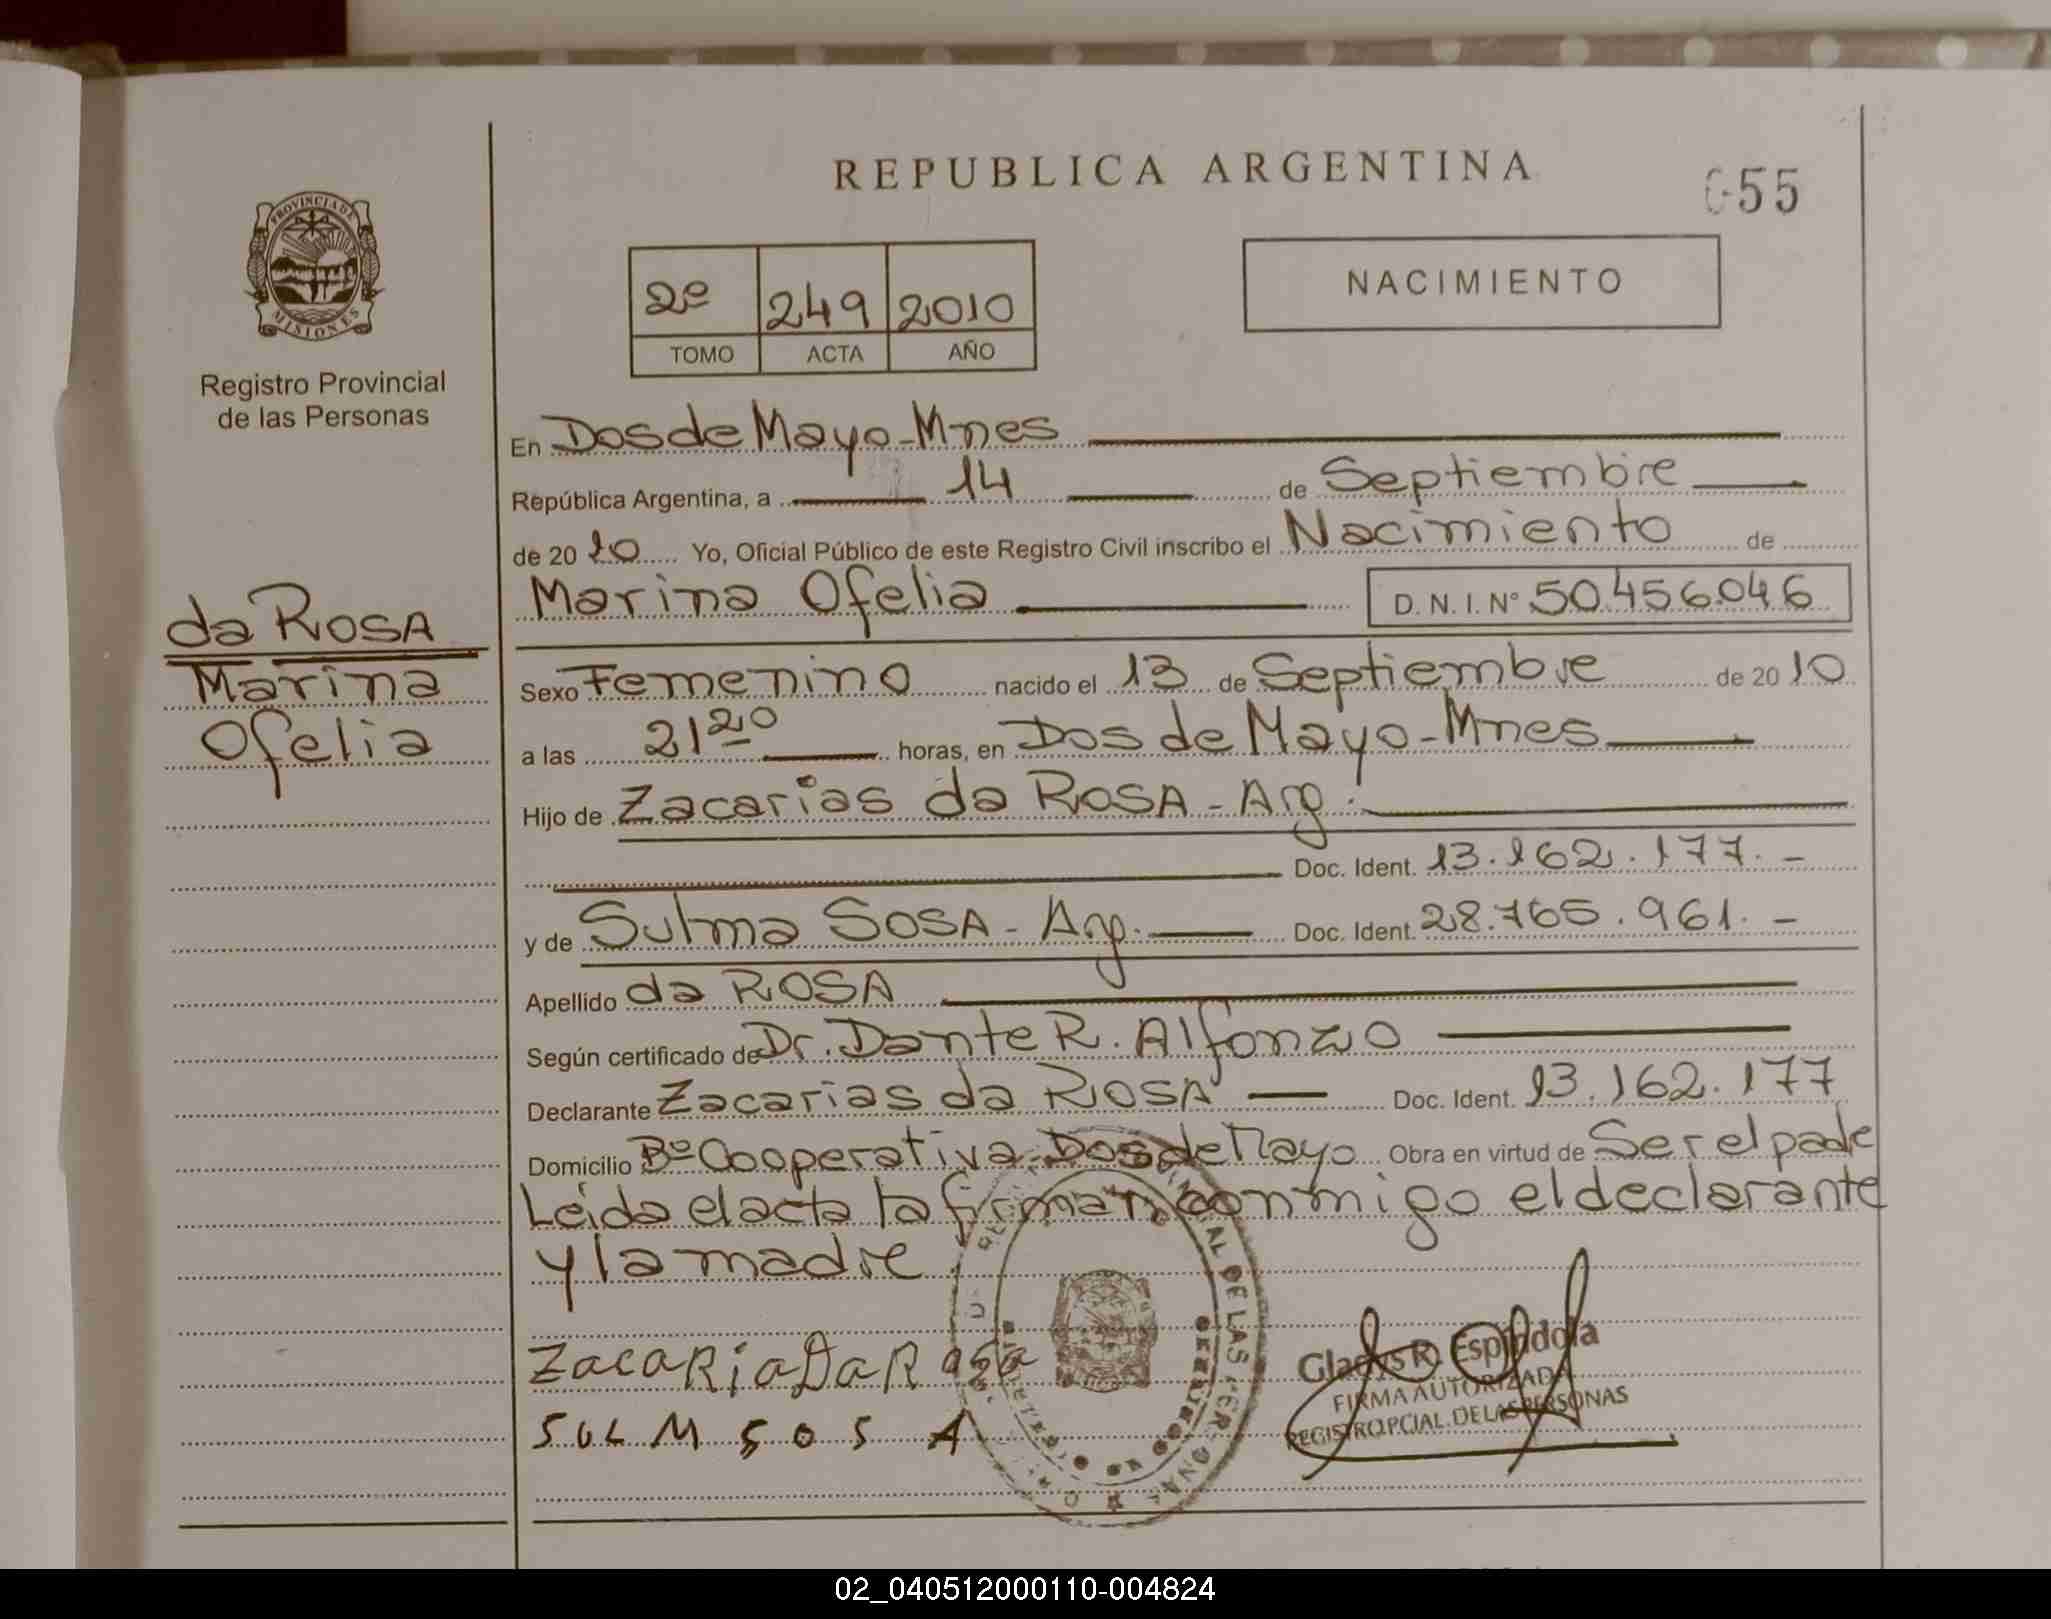 REPUBLICA ARGENTINA
55
PROVINCIA DE
MISIONES
Registro Provincial
de las Personas
2º 249 2010
TOMO ACTA AÑO
NACIMIENTO
En Dos de Mayo - Mnes
República Argentina, a 14 de Septiembre
de 20 10 Yo, Oficial Público de este Registro Civil inscribo el Nacimiento de
Marina Ofelia D. N. I. Nº 50.456.046
da ROSA
Marina
Ofelia
Sexo Femenino nacido el 13 de Septiembre de 20 10
a las 21 20 horas, en Dos de Mayo - Mnes
Hijo de Zacarias da ROSA - Arg.
Doc. Ident. 13.162.177.-
y de Sulma SOSA - Arg. Doc. Ident. 28.765.961.-
Apellido da ROSA
Según certificado de Dr. Dante R. Alfonzo
Declarante Zacarias da ROSA Doc. Ident. 13.162.177
Domicilio Bº Cooperativa - Dos de Mayo Obra en virtud de Ser el padre
Leida el acta la firman conmigo el declarante
y la madre
ZacaRiaDaRosa
SULM SOSA
Gladys R. Espindola
FIRMA AUTORIZADA
REGISTRO PCIAL. DE LAS PERSONAS
02_040512000110-004824